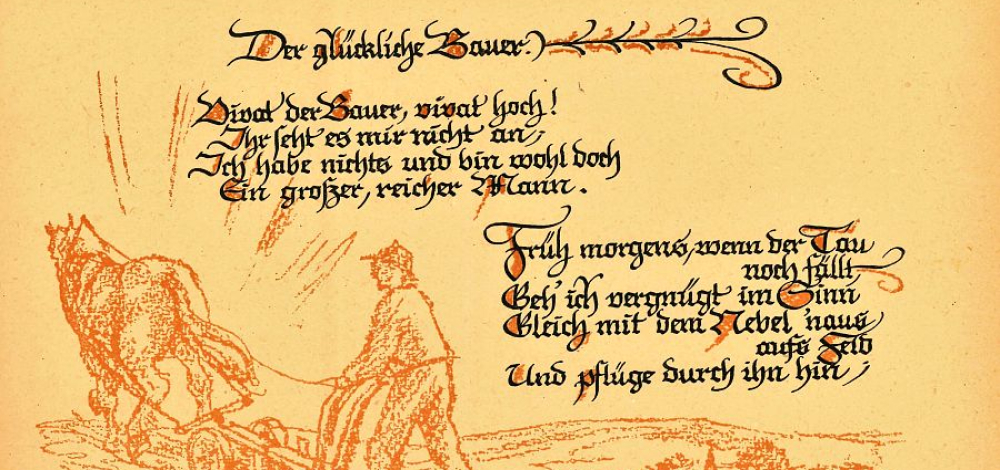 Der glückliche Bauer.
Vivat der Bauer, vivat hoch!
Ihr seht es mir nicht an,
Ich habe nichts und bin wohl doch
Ein großer, reicher Mann.
Früh morgens, wenn der Tau
noch fällt
Geh' ich vergnügt im Sinn
Gleich mit dem Nebel 'naus
aufs Feld
Und pflüge durch ihn hin,